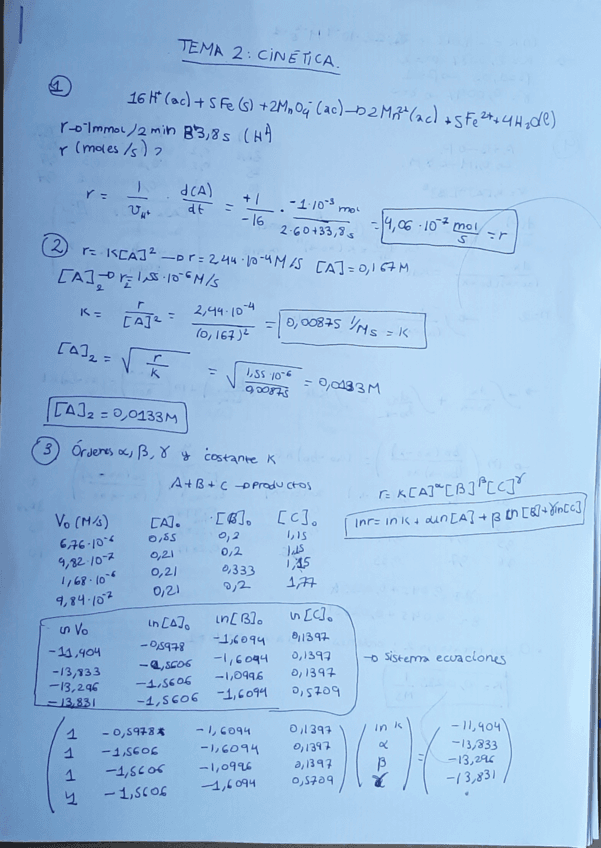 TEMA 2: CINÉTICA.
1
16H⁺(ac) + 5Fe(s) + 2MnO₄⁻(ac) → 2Mn²⁺(ac) + 5Fe²⁺ + 4H₂O(l)
r → 1mmol/2 min 33,8s (H⁺)
r (moles/s)?
r = 1/υH⁺ · d(A)/dt = +1/-16 · -1·10⁻³ mol/2·60+33,8s = 4,06·10⁻⁷ mol/s = r
2 r = K[A]² → r = 2,44·10⁻⁴ M/s [A] = 0,167M
[A]₂ → r₂ = 1,55·10⁻⁶ M/s
K = r/[A]² = 2,44·10⁻⁴/(0,167)² = 0,00875 1/Ms = K
[A]₂ = √(r/K) = √(1,55·10⁻⁶/0,00875) = 0,0133M
[A]₂ = 0,0133M
3 Órdenes α, β, γ y costante K
A+B+C → productos r = K[A]^α[B]^β[C]^γ
ln r = ln K + α ln[A] + β ln[B] + γ ln[C]
V₀ (M/s) [A]₀ [B]₀ [C]₀
6,76·10⁻⁶ 0,55 0,2 1,15
9,82·10⁻⁷ 0,21 0,2 1,15
1,68·10⁻⁶ 0,21 0,333 1,15
9,84·10⁻⁷ 0,21 0,2 1,77
ln V₀ ln[A]₀ ln[B]₀ ln[C]₀
-11,404 -0,5978 -1,6094 0,1397
-13,833 -1,5606 -1,6094 0,1397 → Sistema ecuaciones
-13,296 -1,5606 -1,0996 0,1397
-13,831 -1,5606 -1,6094 0,5709
1 -0,5978 -1,6094 0,1397 ln K -11,404
1 -1,5606 -1,6094 0,1397 α -13,833
1 -1,5606 -1,0996 0,1397 β = -13,296
1 -1,5606 -1,6094 0,5709 γ -13,831